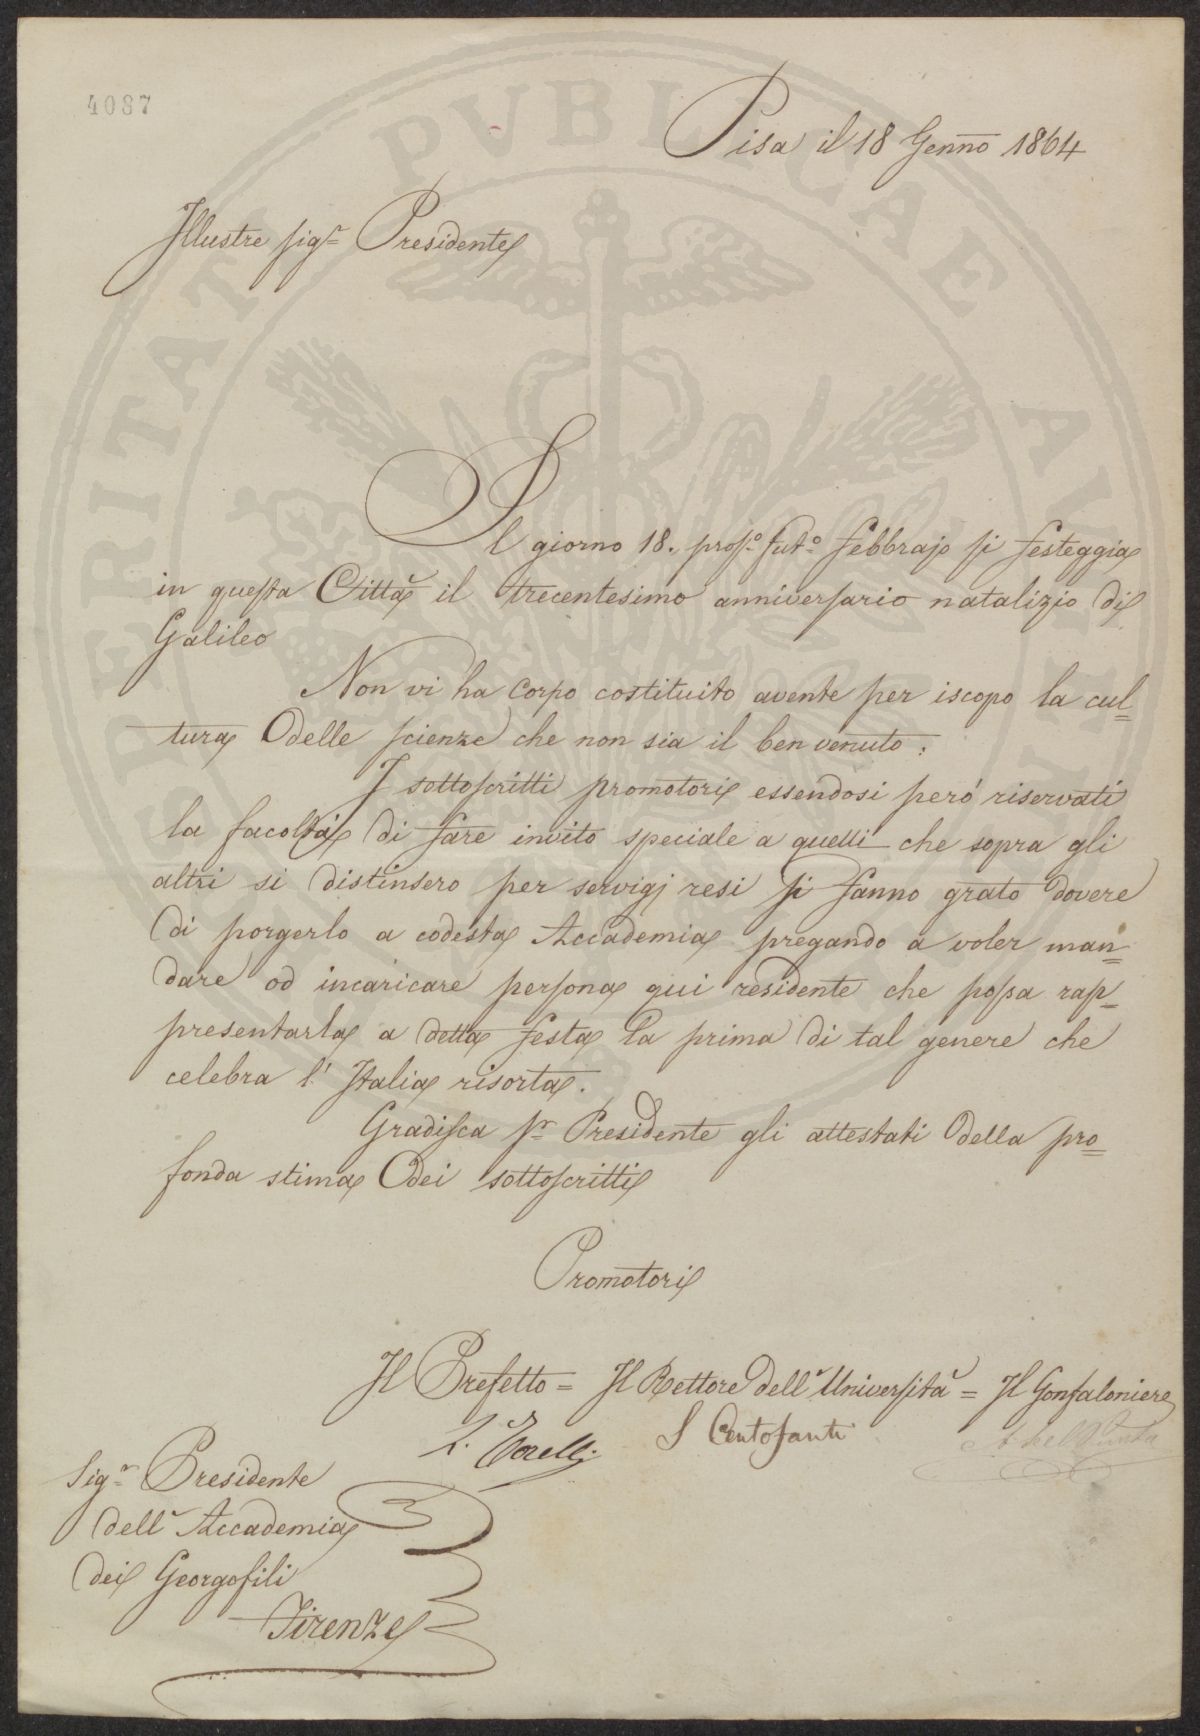 4087
Pisa il 18 Genno 1864
Illustre sigr Presidente
Il giorno 18. prossº futº febbrajo si festeggia
in questa Città il trecentesimo anniversario natalizio di
Galileo
Non vi ha Corpo costituito avente per iscopo la cul=
tura delle scienze che non sia il ben venuto.
I sottoscritti promotori essendosi però riservati
la facoltà di fare invito speciale a quelli che sopra gli
altri si distinsero per servigj resi si fanno grato dovere
di porgerlo a codesta Accademia pregando a voler man=
dare od incaricare persona qui residente che possa rap=
presentarla a detta festa la prima di tal genere che
celebra l'Italia risorta.
Gradisca Sr Presidente gli attestati della pro=
fonda stima dei sottoscritti
Promotori
Il Prefetto = Il Rettore dell'Università = Il Gonfaloniere
L. Torelli S Centofanti
Sigr Presidente
dell'Accademia
dei Georgofili
Firenze
PROSPERITATI PVBLICAE AVGENDAE